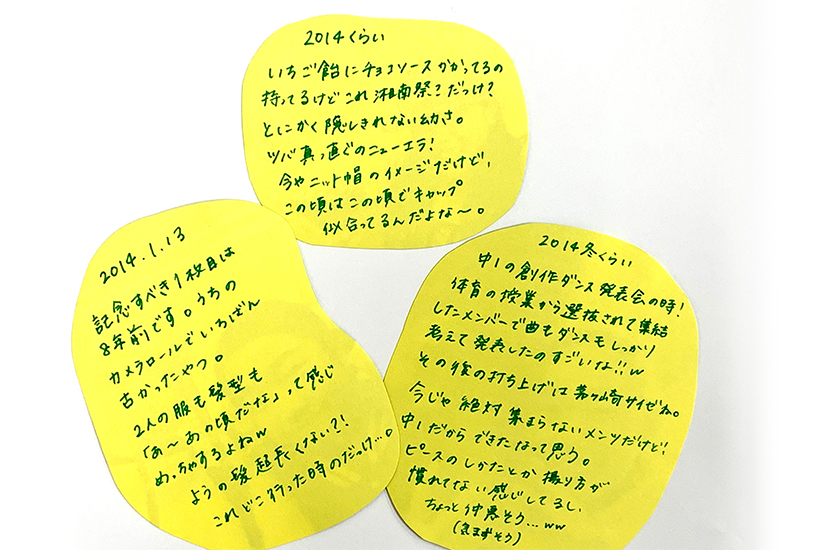 2014くらい
いちご飴にチョコソースかかってるの
持ってるけどこれ湘南祭?だっけ?
とにかく隠しきれない幼さ。
ツバ真っ直ぐのニューエラ!
今やニット帽のイメージだけど、
この頃はこの頃でキャップ
似合ってるんだよな〜。
2014.1.13
記念すべき1枚目は
8年前です。うちの
カメラロールでいちばん
古かったやつ。
2人の服も髪型も
「あ〜あの頃だな」って感じ
めっちゃするよねw
ようの髪超長くない?!
これどこ行った時のだっけ…。
2014冬くらい
中1の創作ダンス発表会の時!
体育の授業から選抜されて集結
したメンバーで曲もダンスもしっかり
考えて発表したのすごいな!!w
その後の打ち上げは茅ヶ崎サイゼね。
今じゃ絶対集まらないメンツだけど!
中1だからできたなって思う。
ピースのしかたとか撮り方が
慣れてない感じしてるし、
ちょっと仲悪そう…ww
(気まずそう)